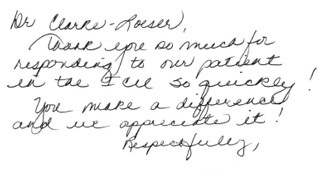 Dr Clarke-Loeser,
Thank you so much for
responding to our patient
in the ICU so quickly!
You make a difference
and we appreciate it!
Respectfully,